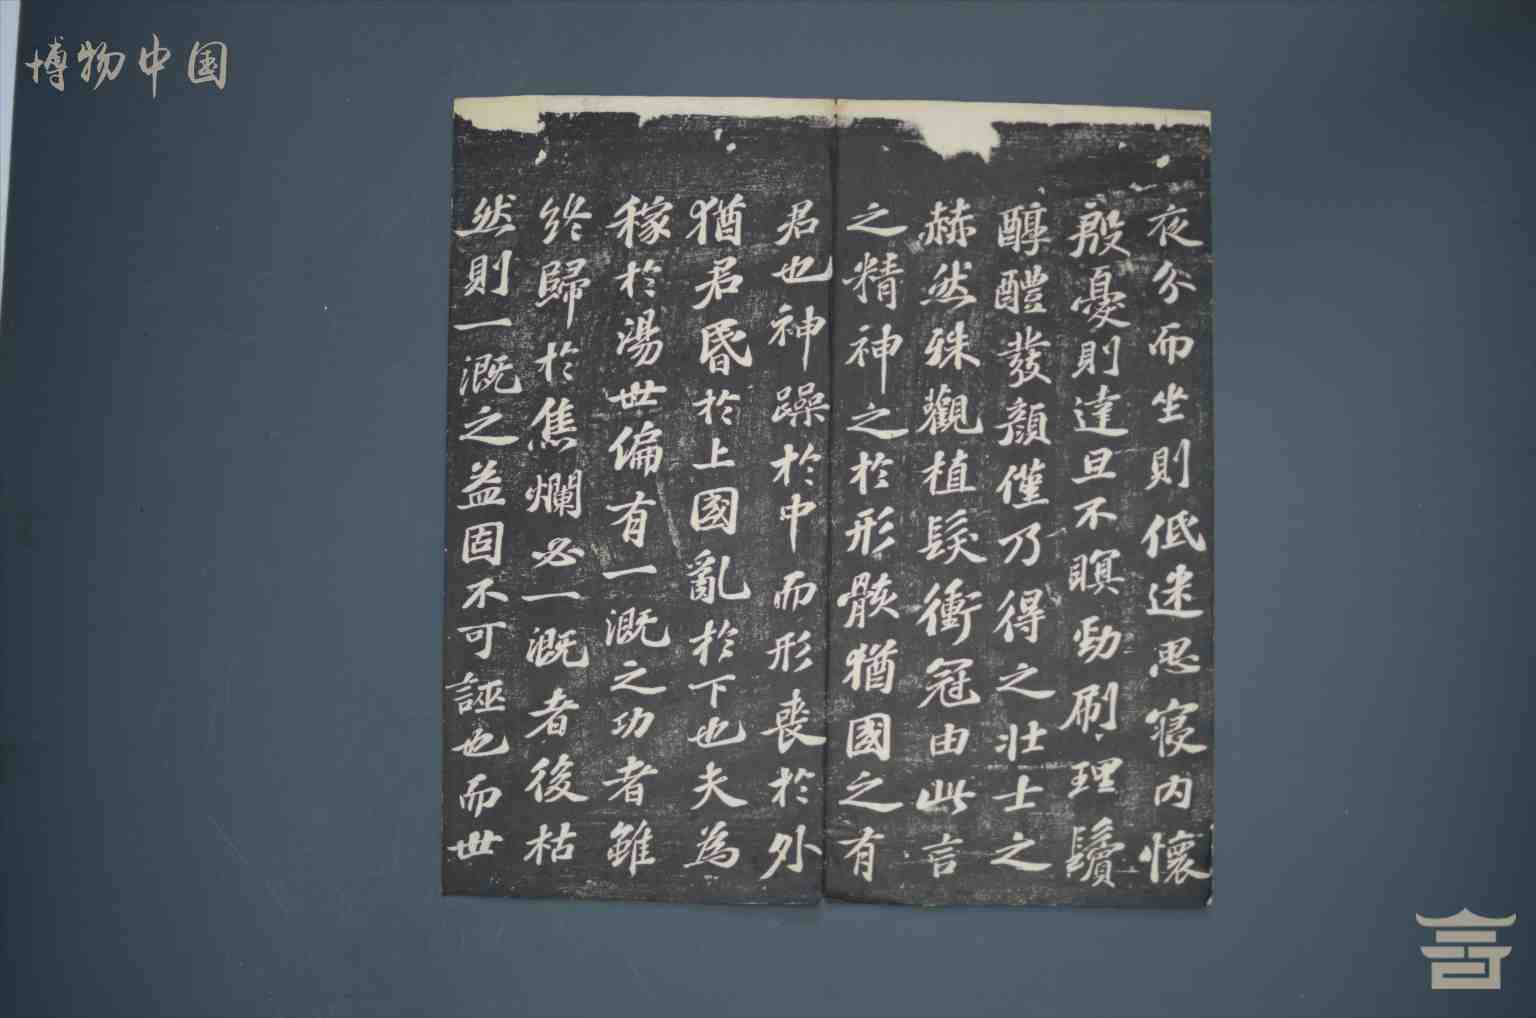 博物中国
夜分而坐則低迷思寝内懷
殷憂則達旦不瞑勁刷理鬢
醇醴發顔僅乃得之壯士之
赫然殊觀植髮衝冠由此言
之精神之於形骸猶國之有
君也神躁於中而形喪於外
猶君昏於上國亂於下也夫為
稼於湯世偏有一溉之功者雖
終歸於焦爛必一溉者後枯
然則一溉之益固不可誣也而世